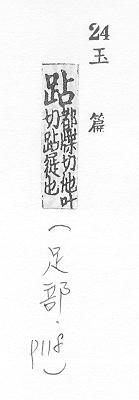 24
玉篇
跕都牒切他叶
切跕屣也
（足部．
p118）